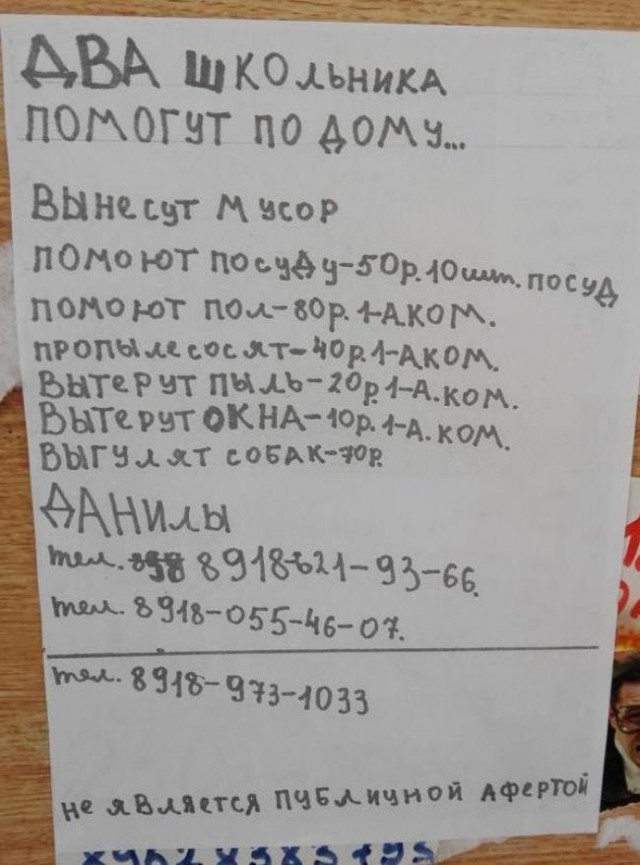 ДВА ШКОЛЬНИКА
ПОМОГУТ ПО ДОМУ...
ВЫНЕСУТ МУСОР
ПОМОЮТ ПОСУДУ-50р.10шт. ПОСУД
ПОМОЮТ ПОЛ-80р.1-А.КОМ.
ПРОПЫЛЕСОСЯТ-40р.1-А.КОМ.
ВЫТЕРУТ ПЫЛЬ-20р.1-А.КОМ.
ВЫТЕРУТ ОКНА-10р.1-А.КОМ.
ВЫГУЛЯТ СОБАК-70р.
ДАНИЛЫ
тел. 8918-621-93-66.
тел. 8918-055-46-07.
тел. 8918-973-1033
не является ПУБЛИЧНОЙ АФЕРТОЙ